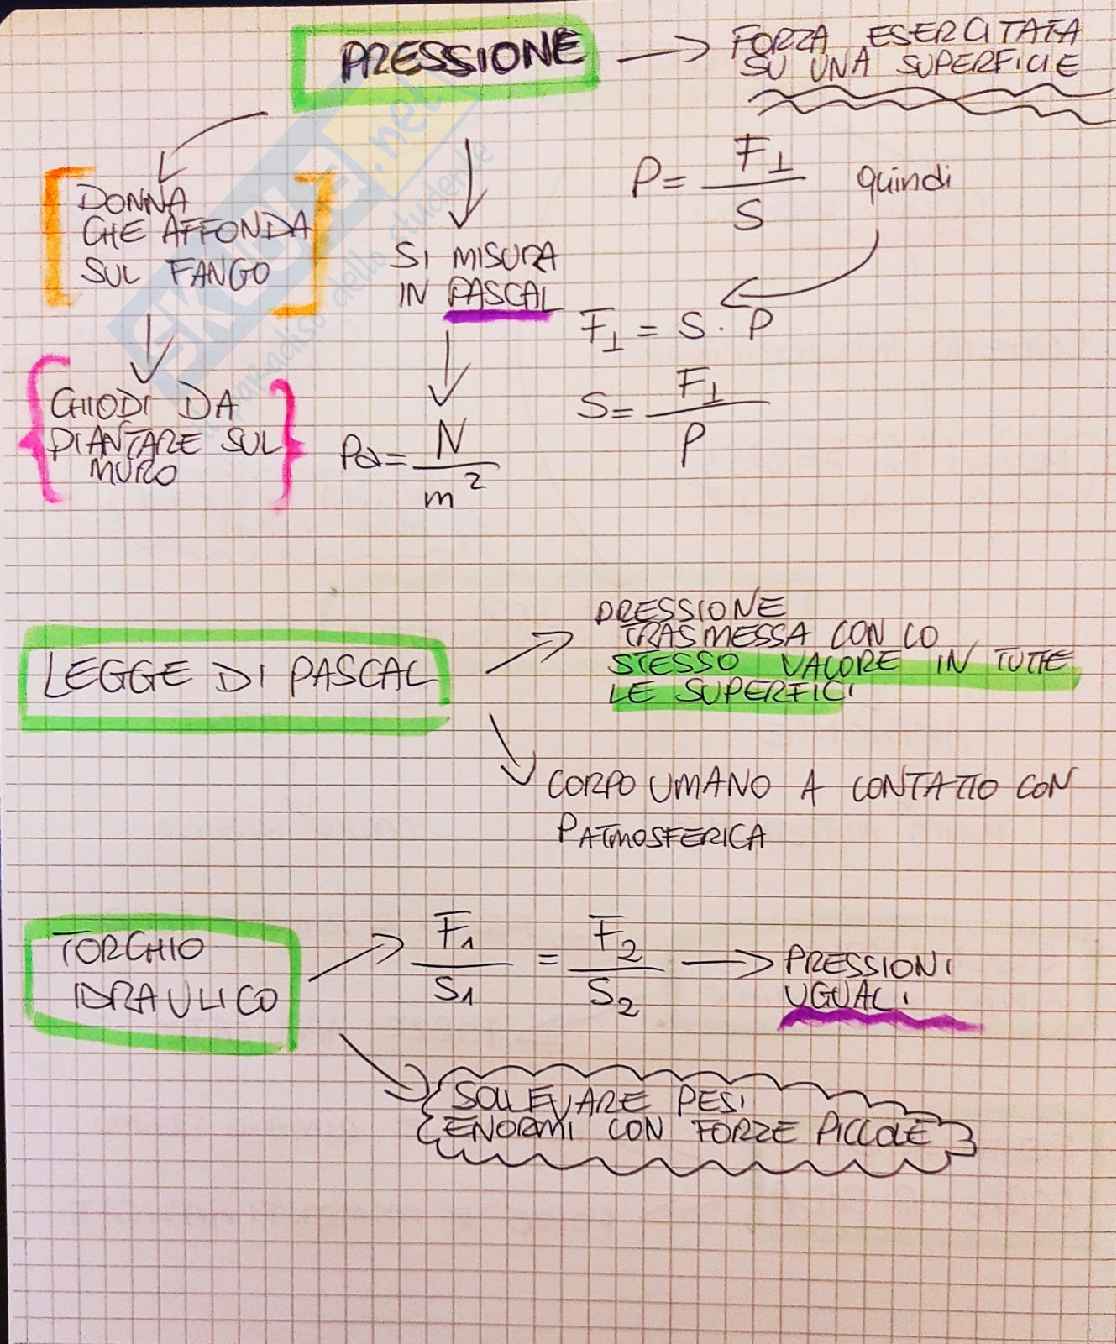 PRESSIONE → FORZA ESERCITATA
SU UNA SUPERFICIE
P = F⊥ / S quindi
F⊥ = S · P
S = F⊥ / P
DONNA
CHE AFFONDA
SUL FANGO
CHIODI DA
PIANTARE SUL
MURO
SI MISURA
IN PASCAL
Pa = N / m²
LEGGE DI PASCAL
PRESSIONE
TRASMESSA CON LO
STESSO VALORE IN TUTTE
LE SUPERFICI
CORPO UMANO A CONTATTO CON
PATMOSFERICA
TORCHIO
IDRAULICO
F1 / S1 = F2 / S2 → PRESSIONI
UGUALI
SOLLEVARE PESI
ENORMI CON FORZE PICCOLE
SKUOLA.net